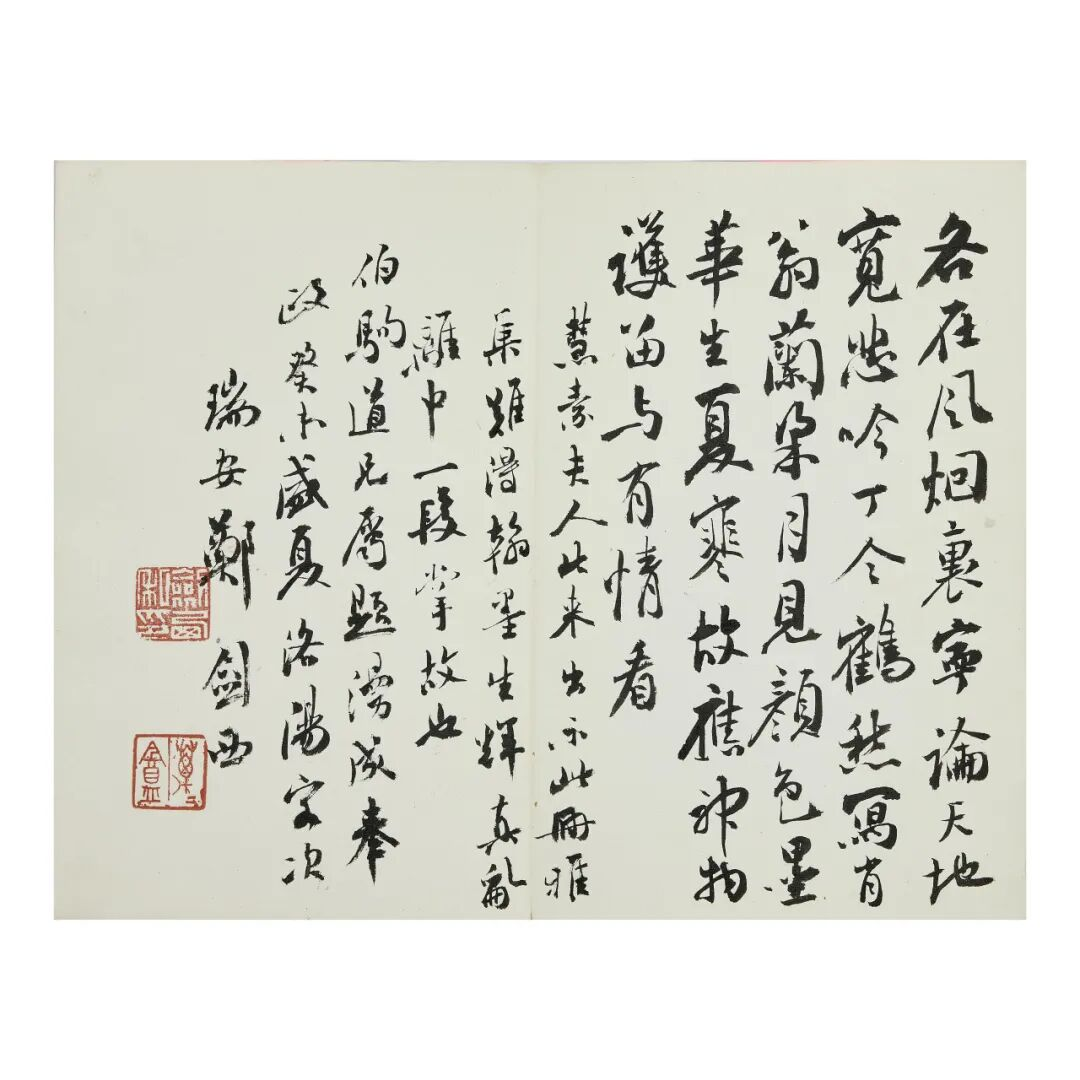 各在风烟裏寧論天地
寬悲吟丁令鶴愁寫肖
翁蘭梁月見顏色墨
華生夏寒故應神物
護留与有情看
慧素夫人北来出示此冊雅
集難得翰墨生輝真亂
離中一段掌故也
伯駒道兄属題漫成奉
政癸未盛夏洛陽客次
瑞安鄭劍西